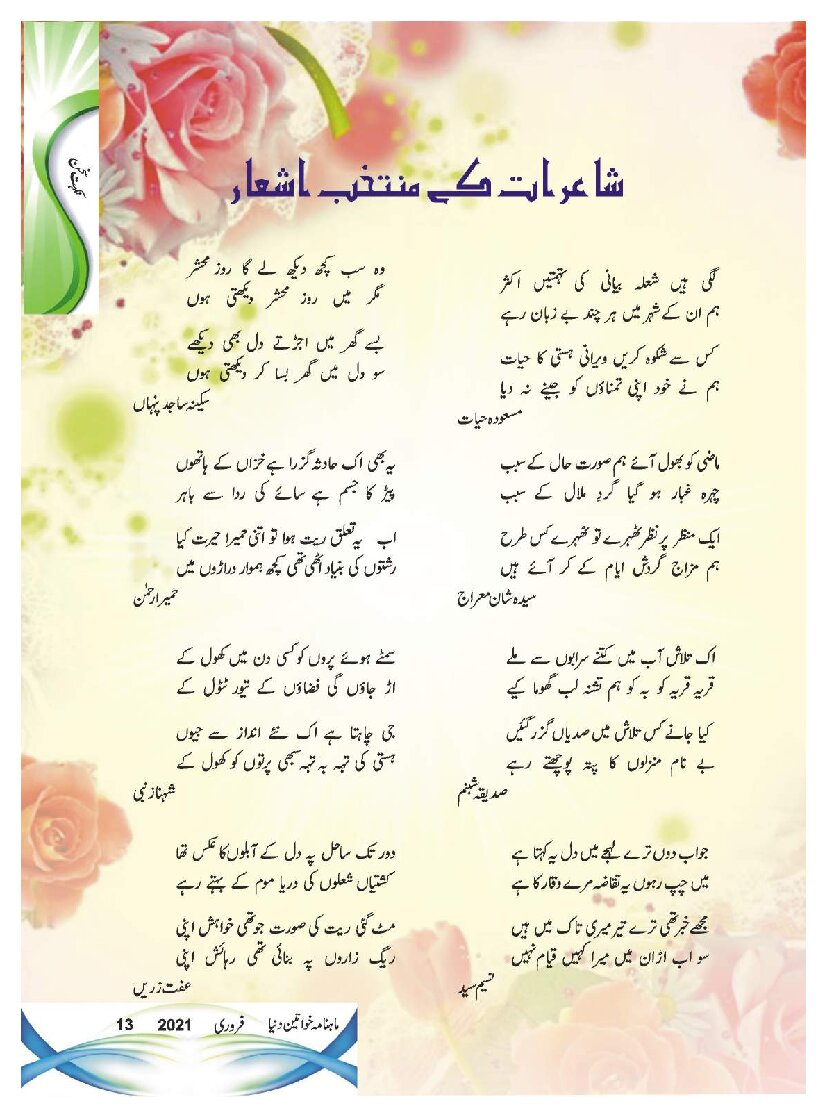 نکہت سخن
شاعرات کے منتخب اشعار
لگی ہیں شعلہ بیانی کی تہمتیں اکثر
ہم ان کے شہر میں ہر چند بے زبان رہے
کس سے شکوہ کریں ویرانی ہستی کا حیات
ہم نے خود اپنی تمناؤں کو جینے نہ دیا
مسعودہ حیات
ماضی کو بھول آئے ہم صورت حال کے سبب
چہرہ غبار ہو گیا گرد ملال کے سبب
ایک منظر پر نظر ٹھہرے تو ٹھہرے کس طرح
ہم مزاج گردش ایام کے کر آئے ہیں
سیدہ شان معراج
اک تلاش آب میں کتنے سرابوں سے ملے
قریہ قریہ کو بہ کو ہم تشنہ لب گھوما کیے
کیا جانے کس تلاش میں صدیاں گزر گئیں
بے نام منزلوں کا پتہ پوچھتے رہے
صدیقہ شبنم
جواب دوں ترے لہجے میں دل یہ کہتا ہے
میں چپ رہوں یہ تقاضہ مرے وقار کا ہے
مجھے خبر تھی ترے تیر میری تاک میں ہیں
سو اب اڑان میں میرا کہیں قیام نہیں
نسیم سید
وہ سب کچھ دیکھ لے گا روز محشر
مگر میں روز محشر دیکھتی ہوں
بسے گھر میں اجڑتے دل بھی دیکھے
سو دل میں گھر بسا کر دیکھتی ہوں
سکینہ ساجد پنہاں
یہ بھی اک حادثہ گزرا ہے خزاں کے ہاتھوں
پیڑ کا جسم ہے سائے کی ردا سے باہر
اب یہ تعلق ریت ہوا تو اتنی حمیرا حیرت کیا
رشتوں کی بنیاد اٹھی تھی کچھ ہموار دراڑوں میں
حمیرا رحمٰن
سمٹے ہوئے پروں کو کسی دن میں کھول کے
اڑ جاؤں گی فضاؤں کے تیور ٹٹول کے
جی چاہتا ہے اک نئے انداز سے جیوں
ہستی کی تہہ بہ تہہ سبھی پرتوں کو کھول کے
شہناز نبی
دور تک ساحل پہ دل کے آبلوں کا عکس تھا
کشتیاں شعلوں کی دریا موم کے بہتے رہے
مٹ گئی ریت کی صورت جو تھی خواہش اپنی
ریگ زاروں پہ بنائی تھی رہائش اپنی
عفت زریں
ماہنامہ خواتین دنیا فروری 2021 13